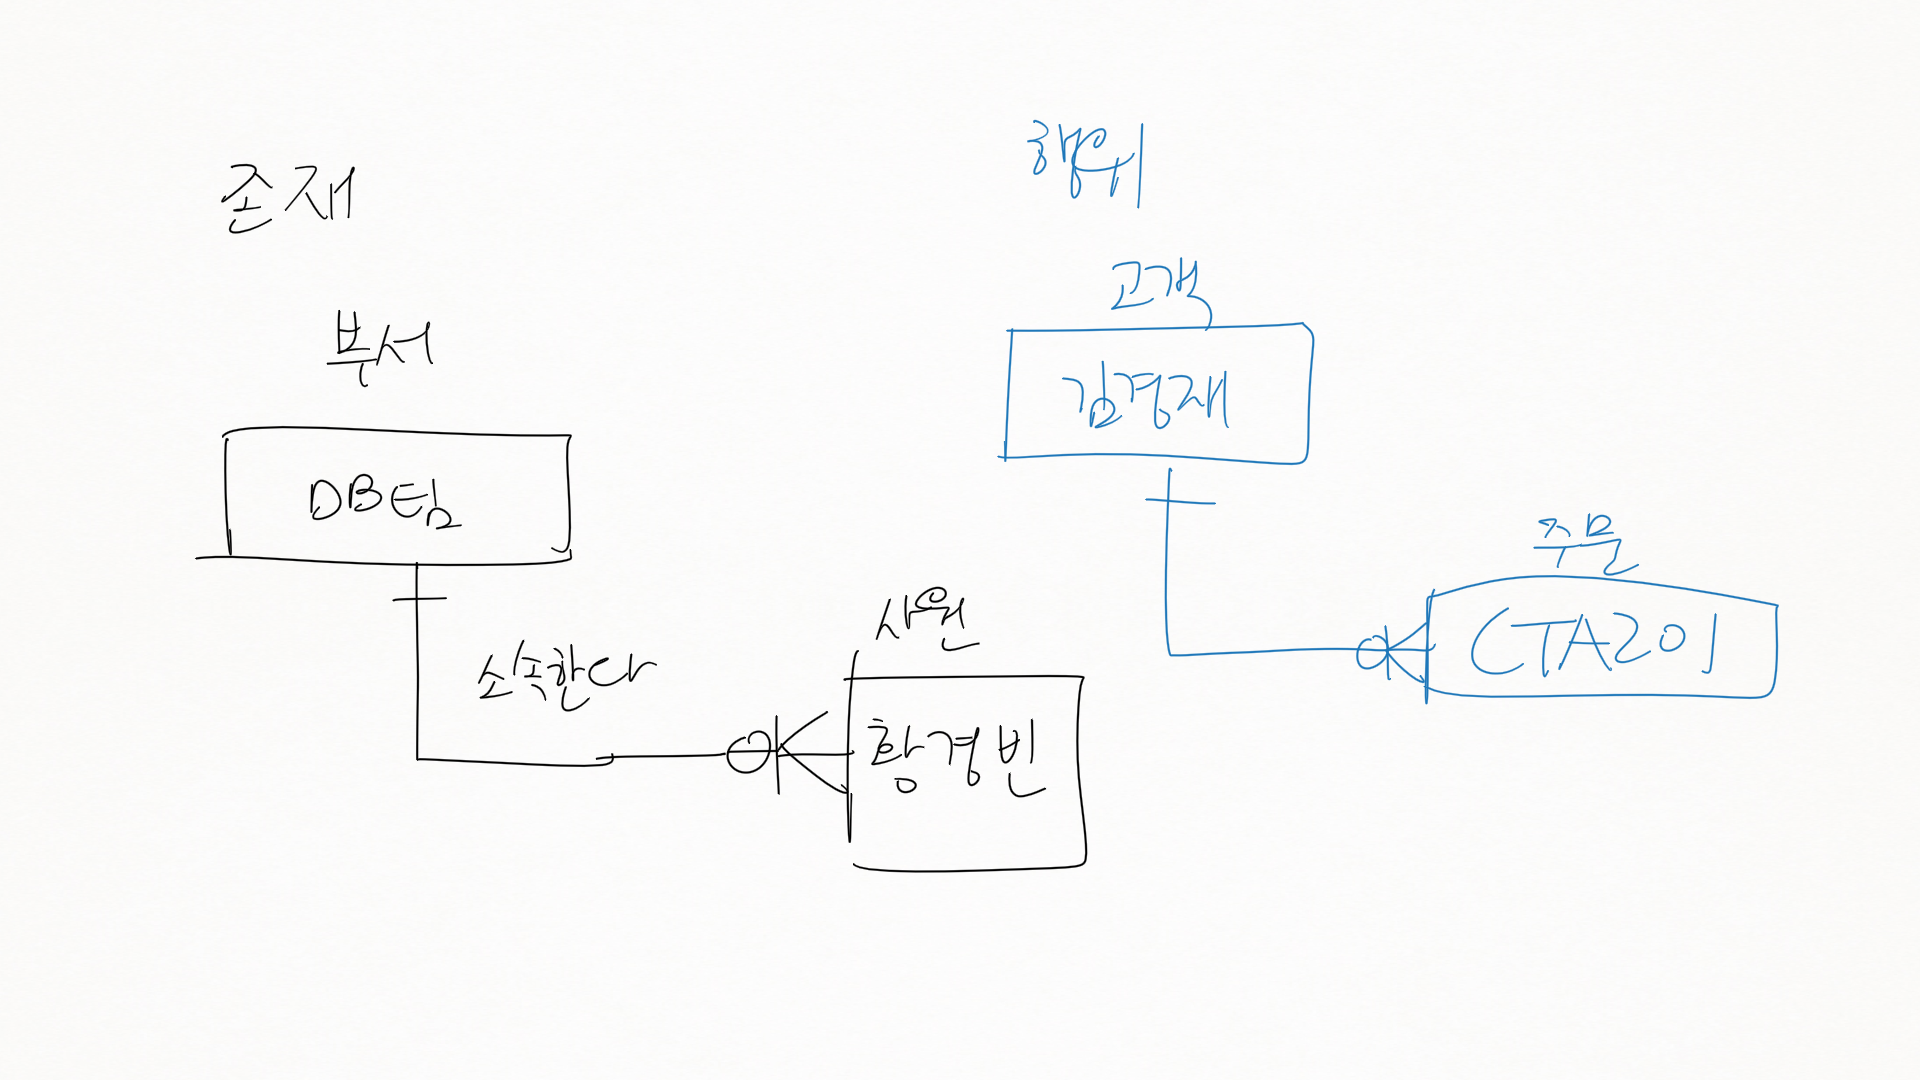 존재
부서
DB팀
소속한다
사원
황경빈
행위
고객
김경재
주문
CTA201